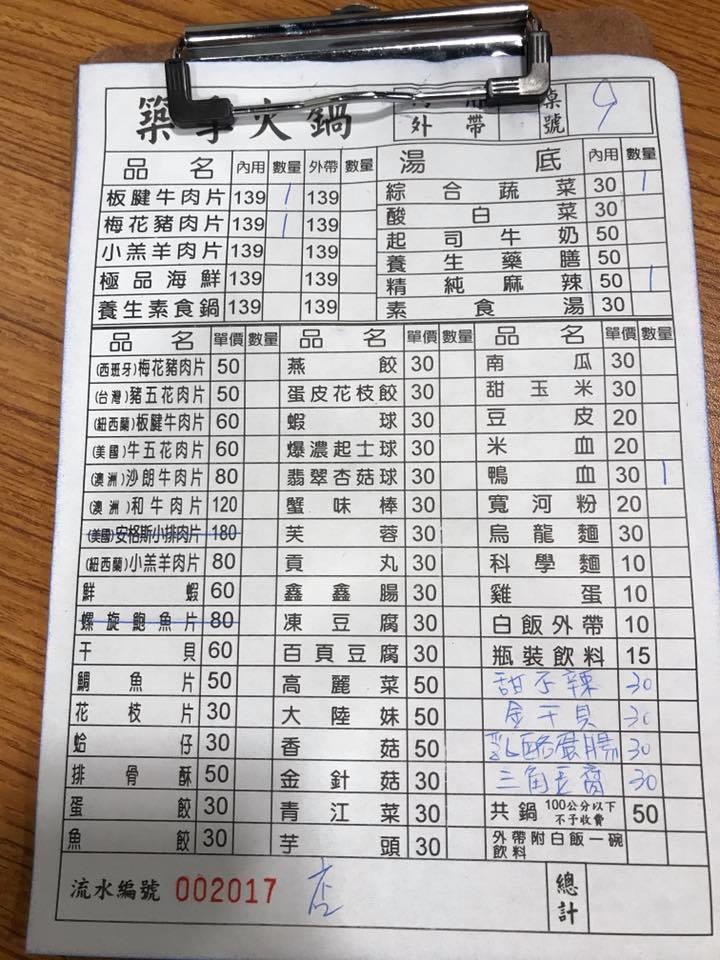 築 火鍋
外帶 桌號 9
品名 內用 數量 外帶 數量 湯底 內用 數量
板腱牛肉片 139 1 139 綜合蔬菜 30 1
梅花豬肉片 139 1 139 酸白菜 30
小羔羊肉片 139 139 起司牛奶 50
極品海鮮 139 139 養生藥膳 50
養生素食鍋 139 139 精純麻辣 50 1
素食湯 30
品名 單價 數量 品名 單價 數量 品名 單價 數量
(西班牙)梅花豬肉片 50 燕餃 30 南瓜 30
(台灣)豬五花肉片 50 蛋皮花枝餃 30 甜玉米 30
(紐西蘭)板腱牛肉片 60 蝦球 30 豆皮 20
(美國)牛五花肉片 60 爆濃起士球 30 米血 20
(澳洲)沙朗牛肉片 80 翡翠杏菇球 30 鴨血 30 1
(澳洲)和牛肉片 120 蟹味棒 30 寬河粉 20
(美國)安格斯小排肉片 180 芙蓉 30 烏龍麵 30
(紐西蘭)小羔羊肉片 80 貢丸 30 科學麵 10
鮮蝦 60 鑫鑫腸 30 雞蛋 10
螺旋鮑魚片 80 凍豆腐 30 白飯外帶 10
干貝 60 百頁豆腐 30 瓶裝飲料 15
鯛魚片 50 高麗菜 50 甜不辣 30
花枝片 30 大陸妹 50 金干貝 30
蛤仔 30 香菇 50 乳酪蛋腸 30
排骨酥 50 金針菇 30 三角豆腐 30
蛋餃 30 青江菜 30 共鍋 100公分以下不予收費 50
魚餃 30 芋頭 30 外帶附白飯一碗飲料
流水編號 002017 店 總計